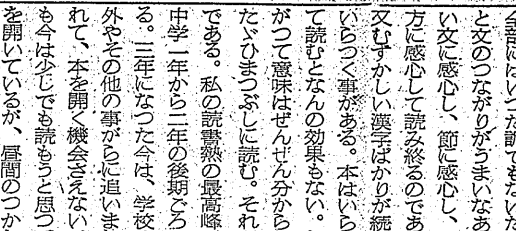 全部にはいつた訳でもないた
と文のつながりがうまいなあ
い文に感心し、節に感心し、
方に感心して読み終るのであ
又むずかしい漢字ばかりが続
いらつく事がある。本はいら
て読むとなんの効果もない。
がつて意味はぜんぜん分から
たゞひまつぶしに読む。それ
である。私の読書熱の最高峰
中学一年から二年の後期ごろ
る。三年になつた今は、学校
外やその他の事がらに追いま
れて、本を開く機会さえない
も今は少しでも読もうと思つ
を開いているが、昼間のつか